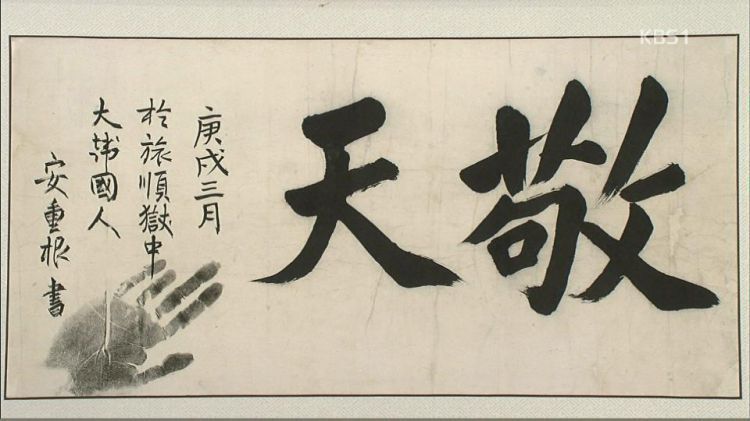 KBS1
敬天
庚戌三月
於旅順獄中
大韓國人
安重根書